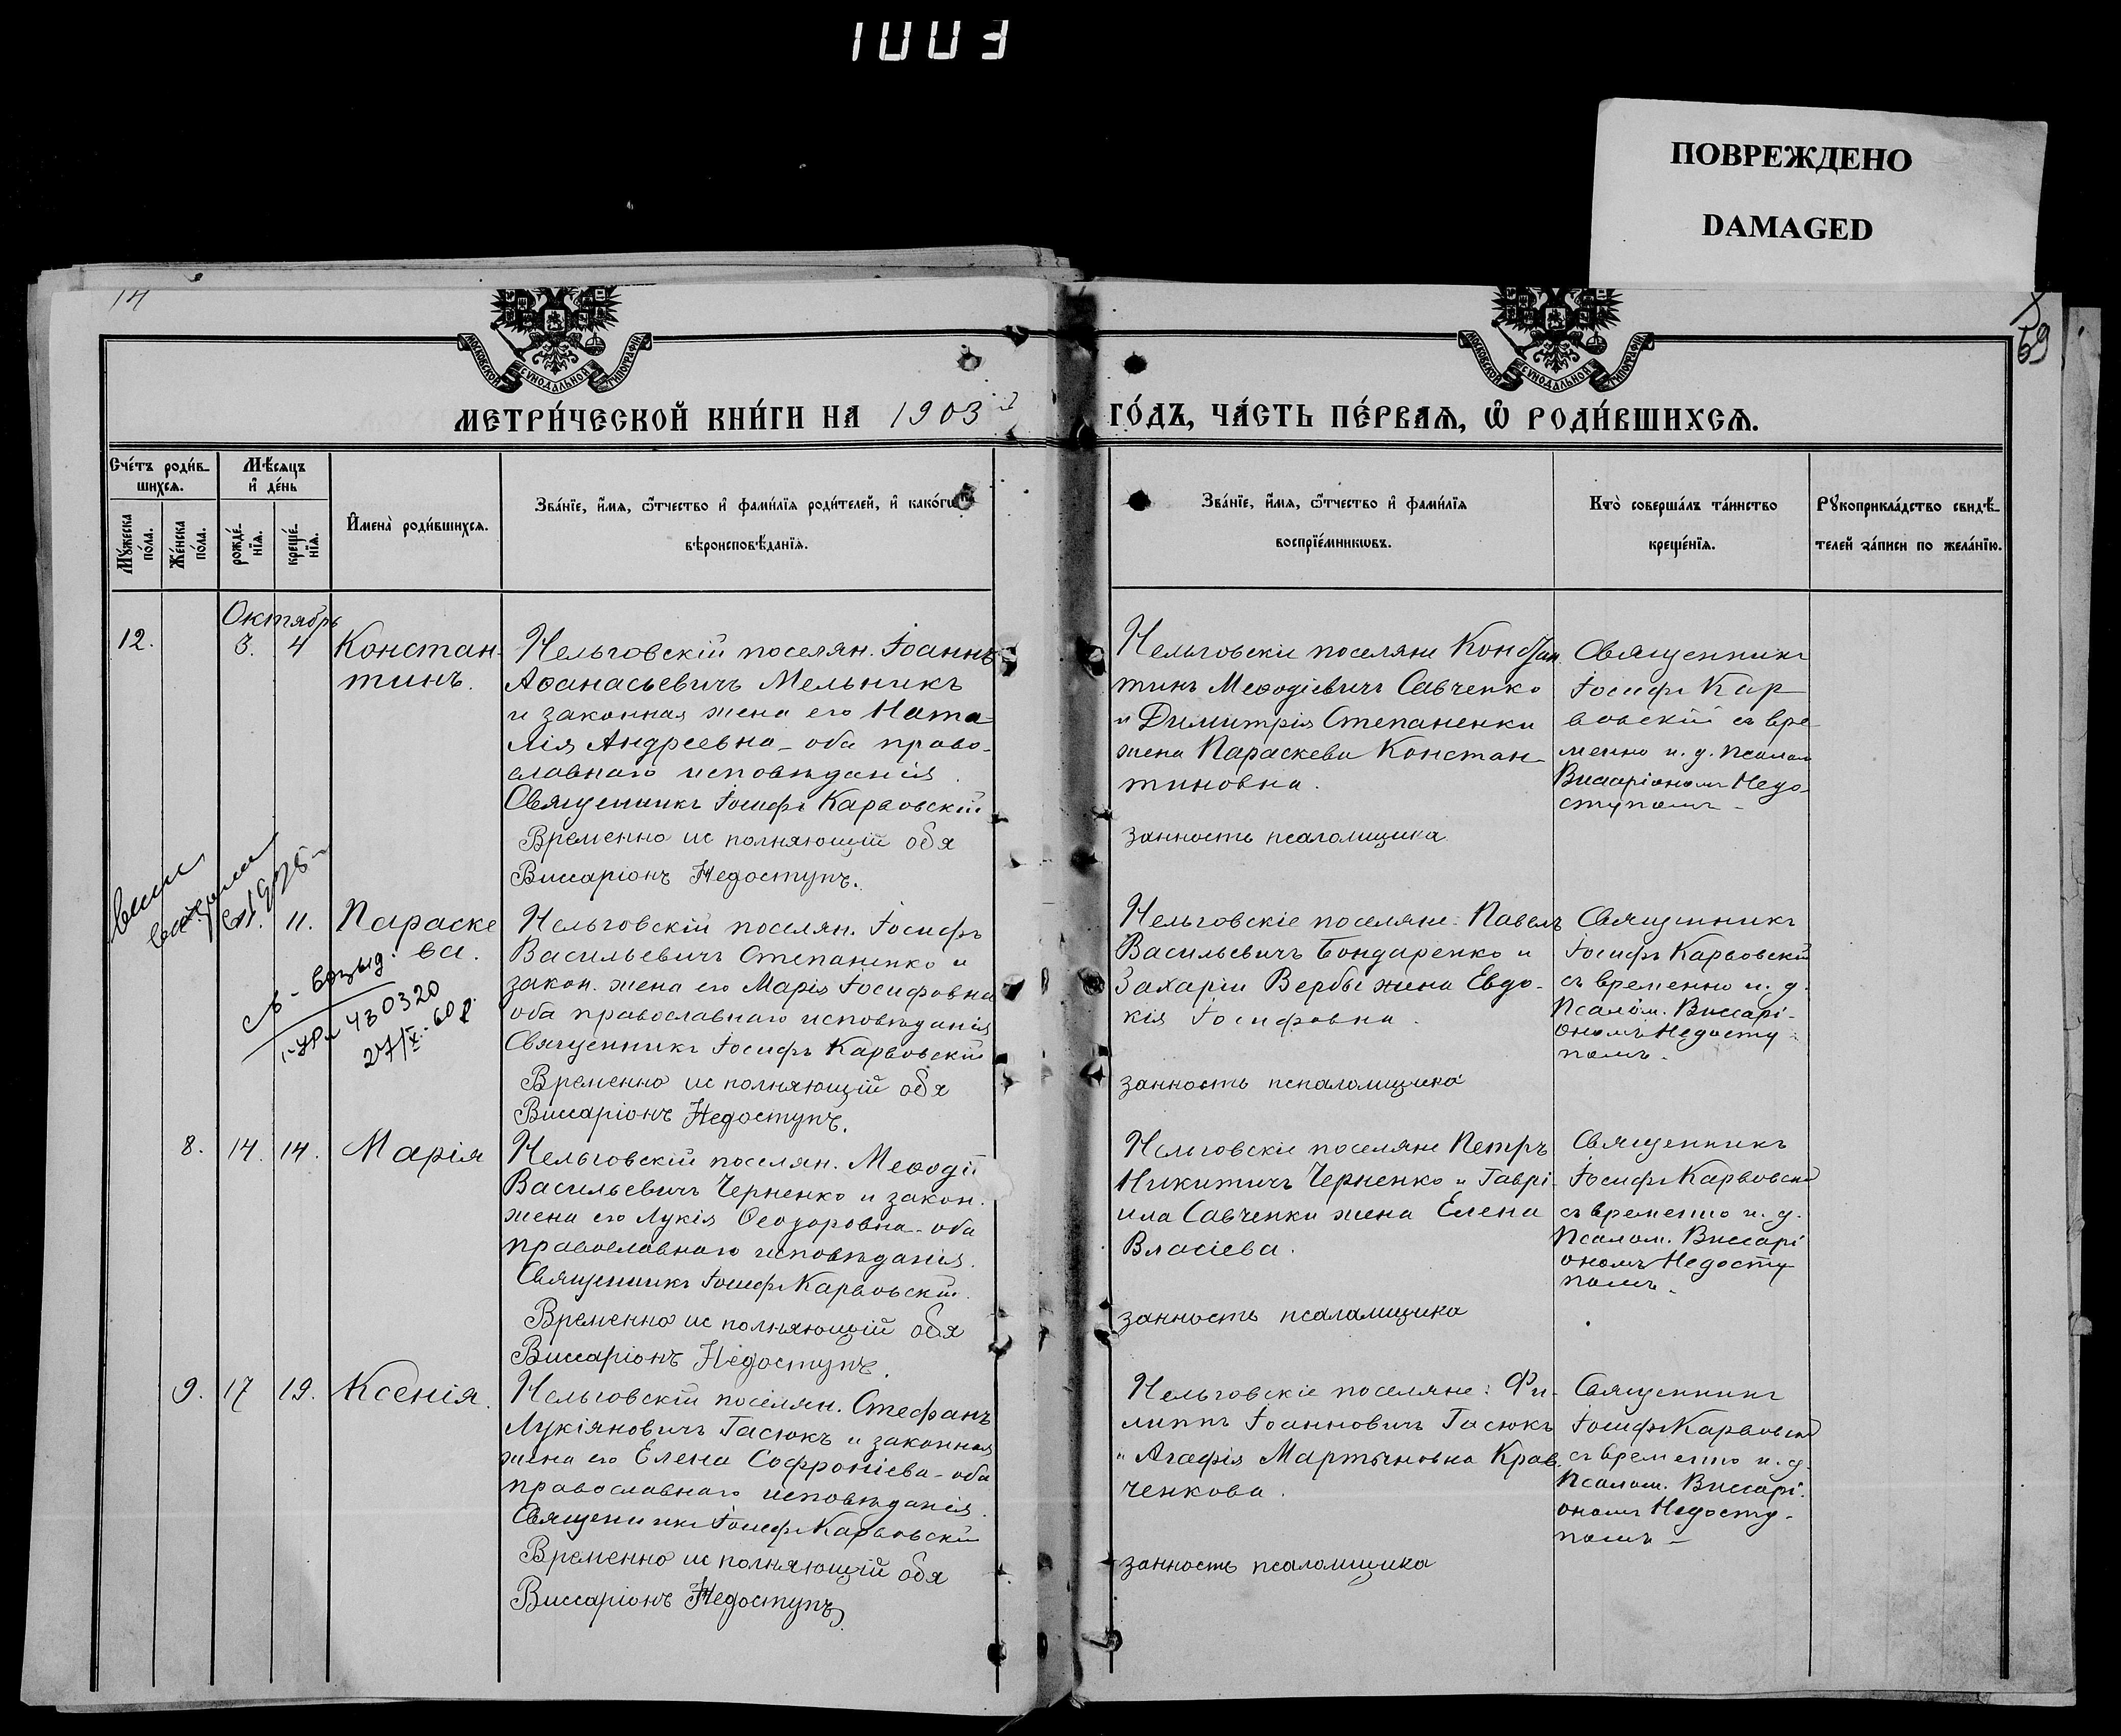 1003
ПОВРЕЖДЕНО
DAMAGED
14
69
МОСКОВСКОЙ СѴНОДАЛЬНОЙ ТИПОГРАФІИ
МОСКОВСКОЙ СѴНОДАЛЬНОЙ ТИПОГРАФІИ
МЕТРИ́ЧЕСКОЙ КНИ́ГИ НА 1903
ГО́ДЪ, ЧА́СТЬ ПЕ́РВАѦ, Ѽ РОДИ́ВШИХСѦ.
Сче́тъ роди́в-
шихсѧ.
Мѣ́сѧцъ
и҆ де́нь
Мꙋ́жеска по́ла.
Же́нска по́ла.
рожде́-
нїѧ.
креще́-
нїѧ.
И҆мена̀ роди́вшихсѧ.
Зва́нїе, и҆́мѧ, ѻ҆́тчество и҆ фами́лїѧ роди́телей, и҆ како́гѡ
вѣроисповѣ́данїѧ.
Зва́нїе, и҆́мѧ, ѻ҆́тчество и҆ фами́лїѧ
воспрїе́мникѡвъ.
Кто̀ соверша́лъ та́инство
креще́нїѧ.
Рꙋкоприкла́дство свидѣ́-
телей за́писи по жела́нїю.
Октябрь
12.
3.
4
Констан-
тинъ.
Нельговскій поселян. Іоаннъ
Аѳанасьевичъ Мельникъ
и законная жена его Ната-
лія Андреевна - оба право-
славнаго исповѣданія.
Священникъ Іосифъ Карвовскій
Временно ис полняющій обя
Виссаріонъ Недоступъ.
Нельговскіе поселяне Констан
тинъ Меѳодіевичъ Савченко
и Димитрія Степаненки
жена Параскева Констан-
тиновна.
занность псаломщика
Священникъ
Іосифъ Кар
вовскій съ вре
менно и. д. псалом
Виссаріономъ Недо-
ступомъ -
11.
Параске
ва.
430320
27/X-60
Нельговскій поселян. Іосифъ
Васильевичъ Степаненко и
закон. жена его Марія Іосифовна
оба православнаго исповѣданія
Священникъ Іосифъ Карвовскій
Временно ис полняющій обя
Виссаріонъ Недоступъ.
Нельговскіе поселяне: Павелъ
Васильевичъ Бондаренко и
Захаріи Вербы жена Евдо-
кія Іосифовна.
занность пспаломщика
Священникъ
Іосифъ Карвовскій
съ временно и. д.
Псалом. Виссарі-
ономъ Недосту
помъ.
8.
14.
14.
Марія
Нельговскій поселян. Меѳодій
Васильевичъ Черненко и закон.
жена его Лукія Ѳеодоровна - оба
православнаго исповѣданія.
Священникъ Іосифъ Карвовскій.
Временно ис полняющій обя
Виссаріонъ Недоступъ.
Нельговскіе поселяне Петръ
Никитичъ Черненко и Гаврі-
ила Савченки жена Елена
Власіева.
занность псаламщика
Священникъ
Іосифъ Карвовскій
съ временно и. д.
Псалом. Виссарі
ономъ Недосту
помъ.
9.
17
19.
Ксенія.
Нельговскій поселян. Стефанъ
Лукіяновичъ Гасюкъ и законная
жена его Елена Софроніева - оба
православнаго исповѣданія.
Священникъ Іосифъ Карвовскій
Временно ис полняющій обя
Виссаріонъ Недоступъ
Нельговскіе поселяне: Фи-
липпъ Іоанновичъ Гасюкъ
и Агафія Мартыновна Крав-
ченкова.
занность псаломщика
Священникъ
Іосифъ Карвовскій
съ временно и. д.
Псалом. Виссарі-
ономъ Недосту-
помъ -